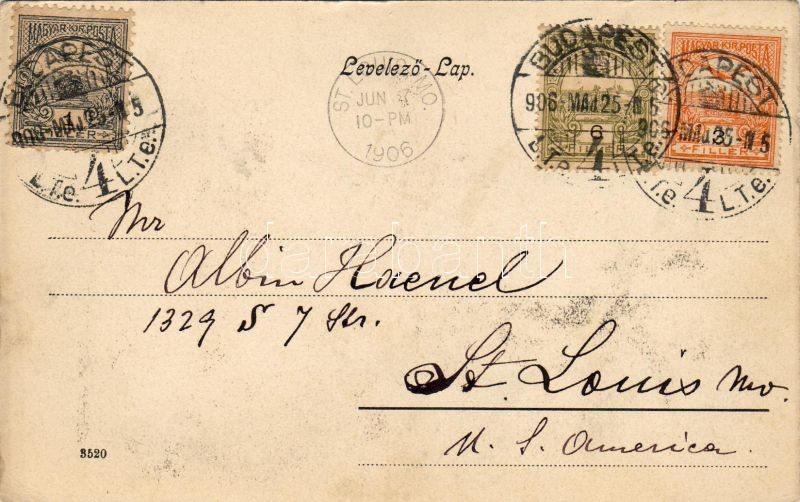 MAGYAR KIR. POSTA
BUDAPEST
906-MÁJ 25-N 5
FILLÉR
4
L.T.e. L.T.e.
Levelező-Lap.
ST. LOUIS, MO.
JUN
10-PM
1906
BUDAPEST
906-MÁJ 25-N 5
6
FILLÉR
4
MAGYAR KIR. POSTA
BUDAPEST
906-MÁJ 25-N 5
FILLÉR
4
L.T.e. L.T.e.
darabanth
Mr
Albin Haenel
1329 S 7 Str.
St. Louis Mo.
U. S. America.
3520